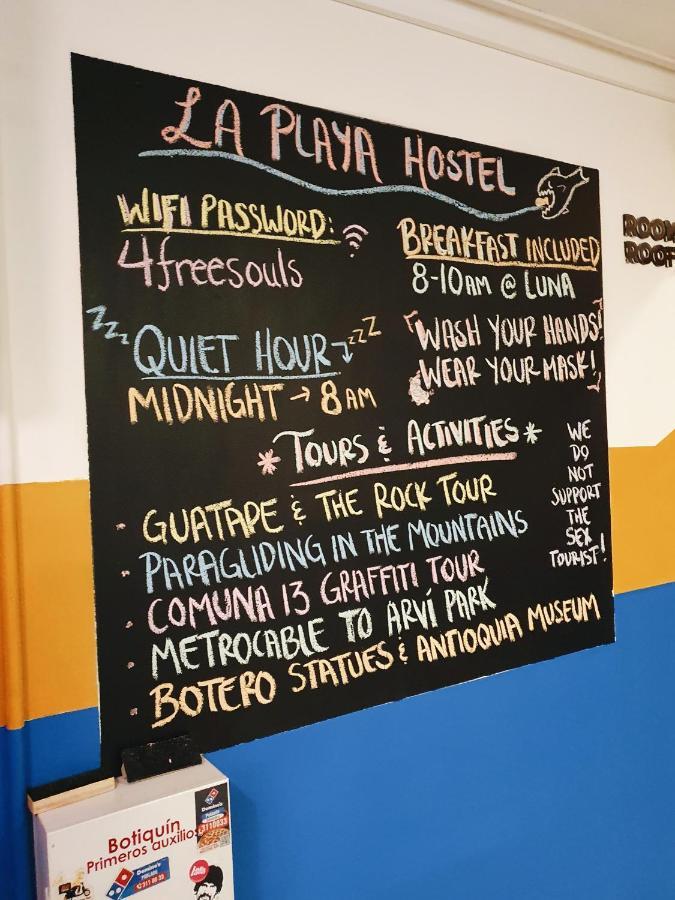 LA PLAYA HOSTEL
WIFI PASSWORD:
4freesouls
BREAKFAST INCLUDED
8-10AM @ LUNA
zzz QUIET HOUR zzz
MIDNIGHT → 8AM
WASH YOUR HANDS!
WEAR YOUR MASK!
* TOURS & ACTIVITIES *
· GUATAPE & THE ROCK TOUR
· PARAGLIDING IN THE MOUNTAINS
· COMUNA 13 GRAFFITI TOUR
· METROCABLE TO ARVÍ PARK
· BOTERO STATUES & ANTIOQUIA MUSEUM
WE
DO
NOT
SUPPORT
THE
SEX
TOURIST!
ROOF
Botiquín
Primeros auxilios
Domino's
3110033
Domino's